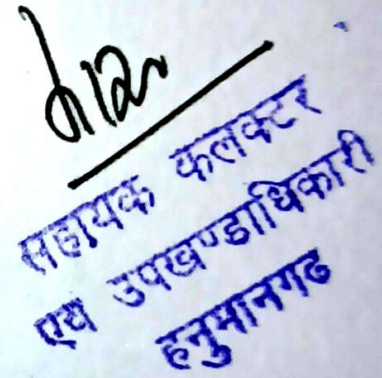 सहायक कलक्टर
एव उपखण्डाधिकारी
हनुमानगढ